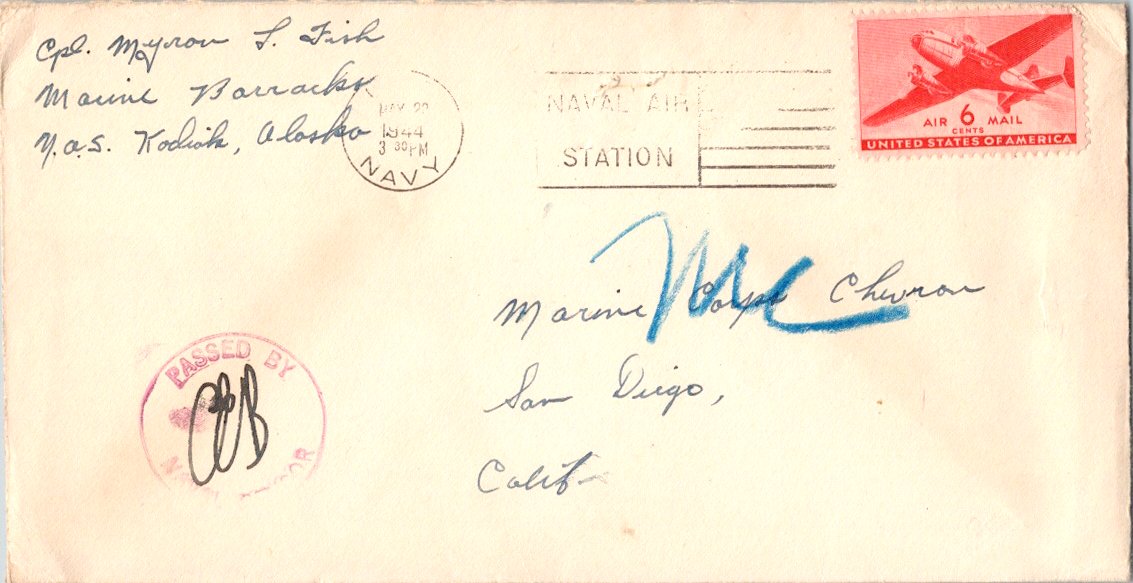 Cpl. Myron L. Fish
Marine Barracks
N.A.S. Kodiak, Alaska
MAY 22
1944
3 30 PM
NAVY
NAVAL AIR
STATION
AIR 6 MAIL
CENTS
UNITED STATES OF AMERICA
Marine Corps Chevron
San Diego,
Calif-
PASSED BY